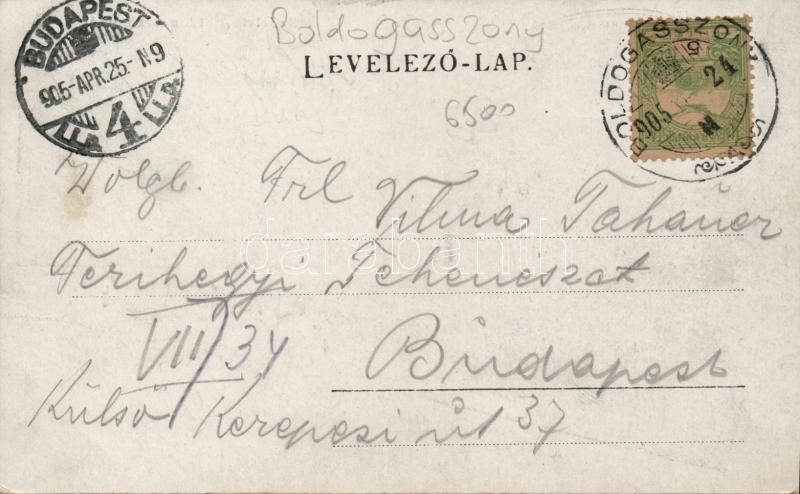 Boldogasszony
LEVELEZŐ-LAP.
BUDAPEST
905-APR.25.-N9
4
6500
BOLDOGASSZONY
905
24
M
Wolgb. Frl Vilma Tahauer
Ferihegyi Tehenészet
VIII/34 Budapest
Külső Kerepesi út 37
darabanth